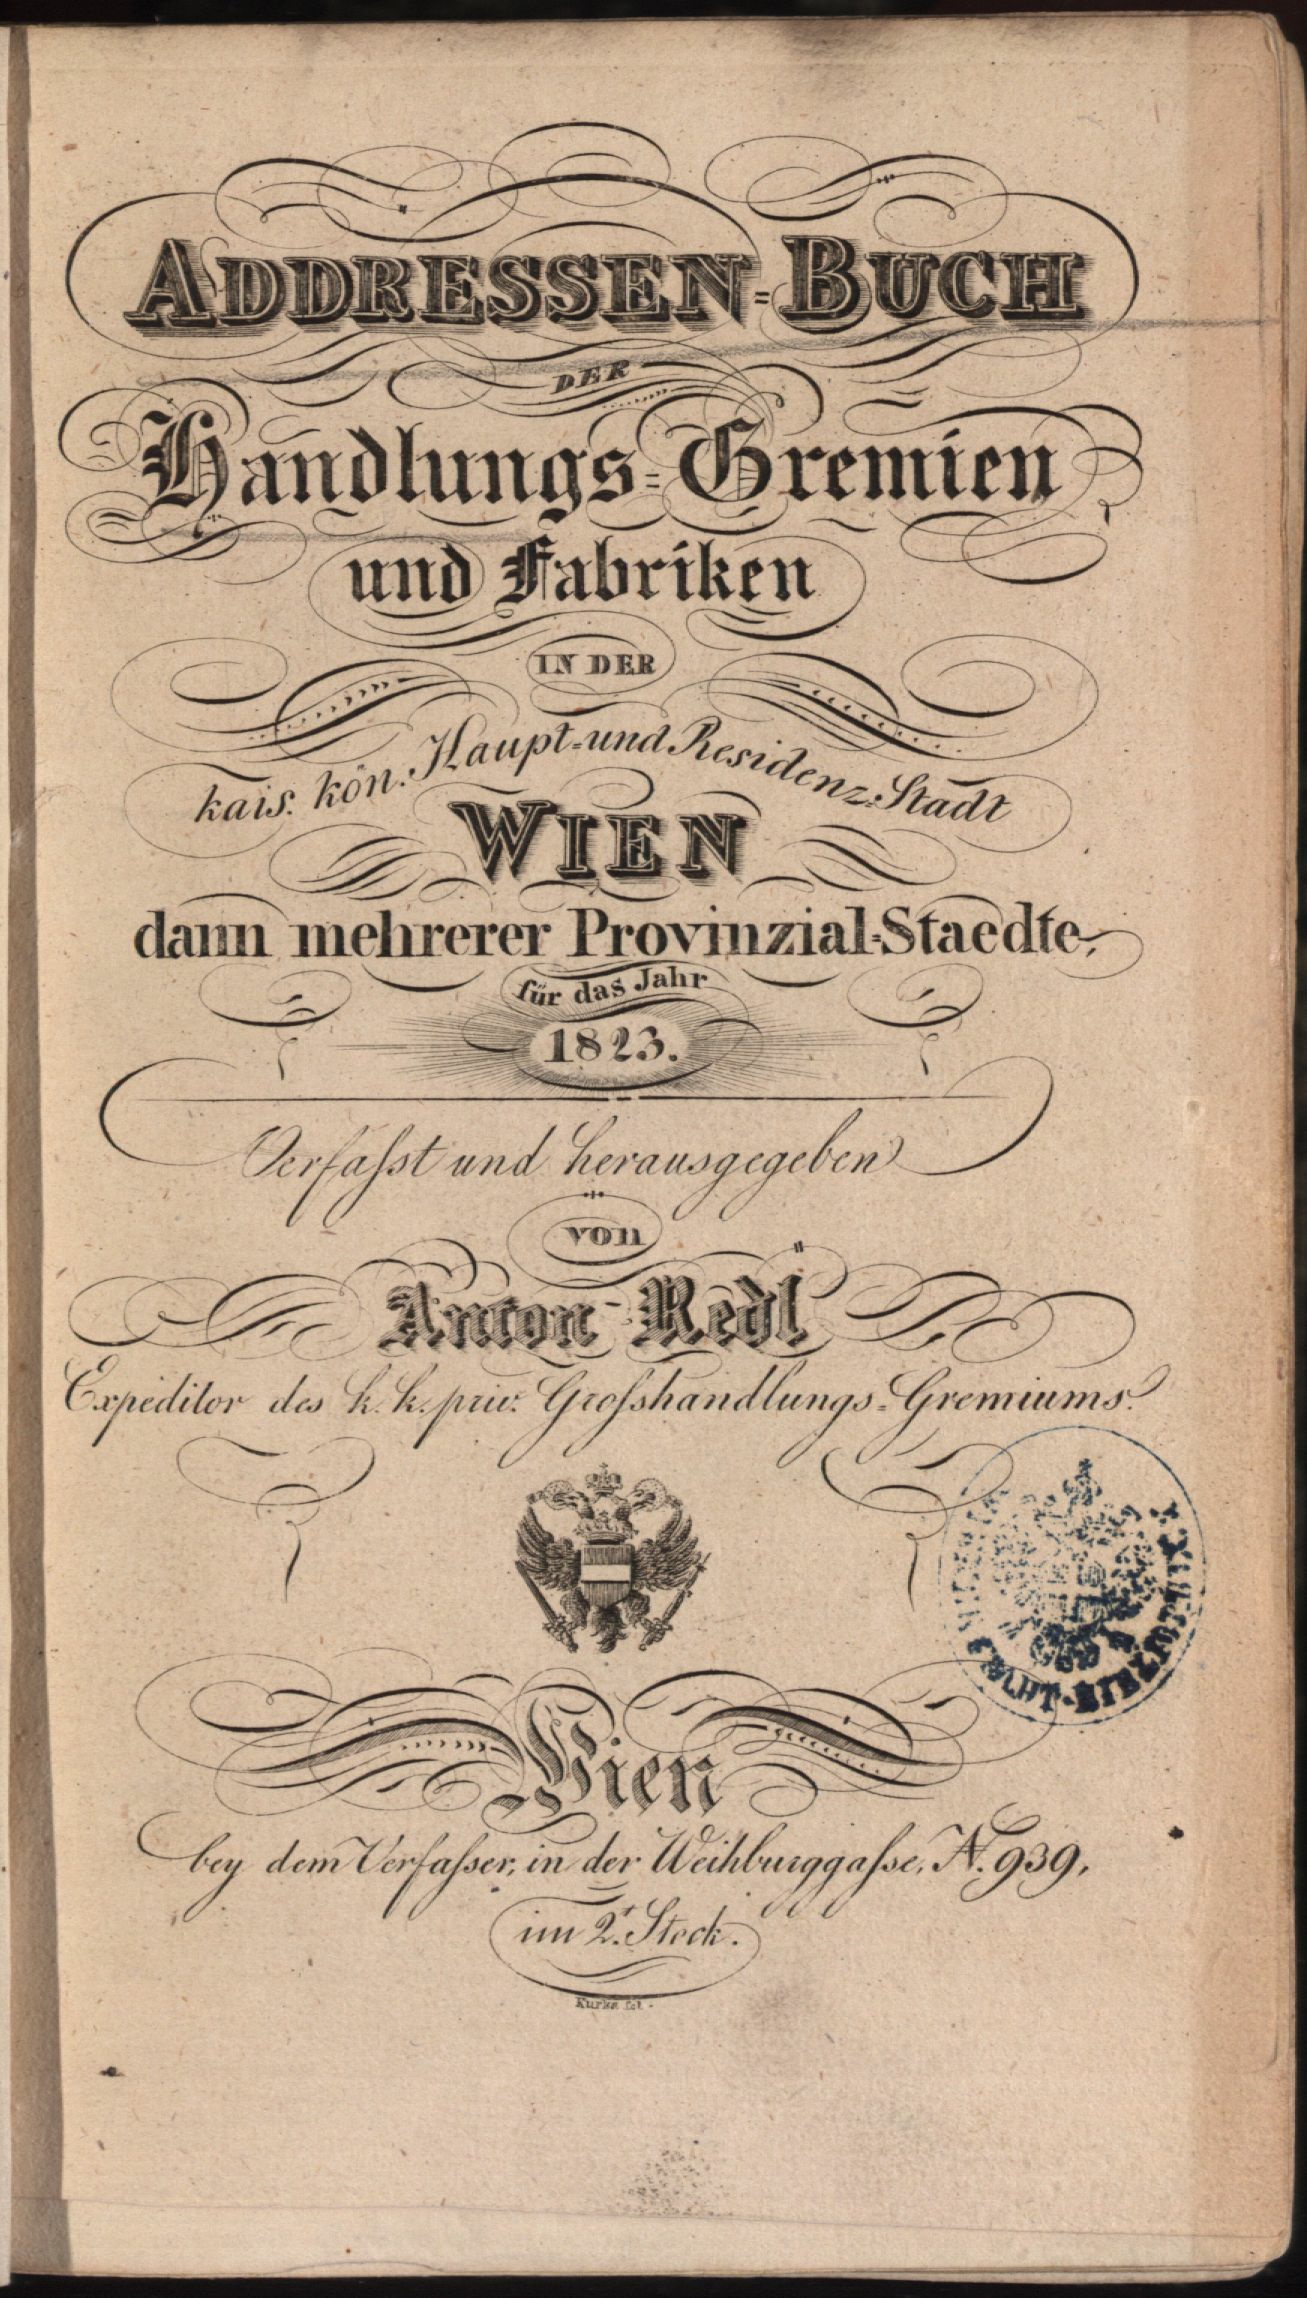 ADDRESSEN=BUCH
DER
Handlungs=Gremien
und Fabriken
IN DER
kais. kön. Haupt=und Residenz=Stadt
WIEN
dann mehrerer Provinzial=Staedte,
für das Jahr
1823.
Verfaßt und herausgegeben
von
Anton Redl
Expeditor des k. k. priv. Großhandlungs=Gremiums.
Wien
bey dem Verfaßer, in der Weihburggaße, N. 939,
im 2.t Stock.